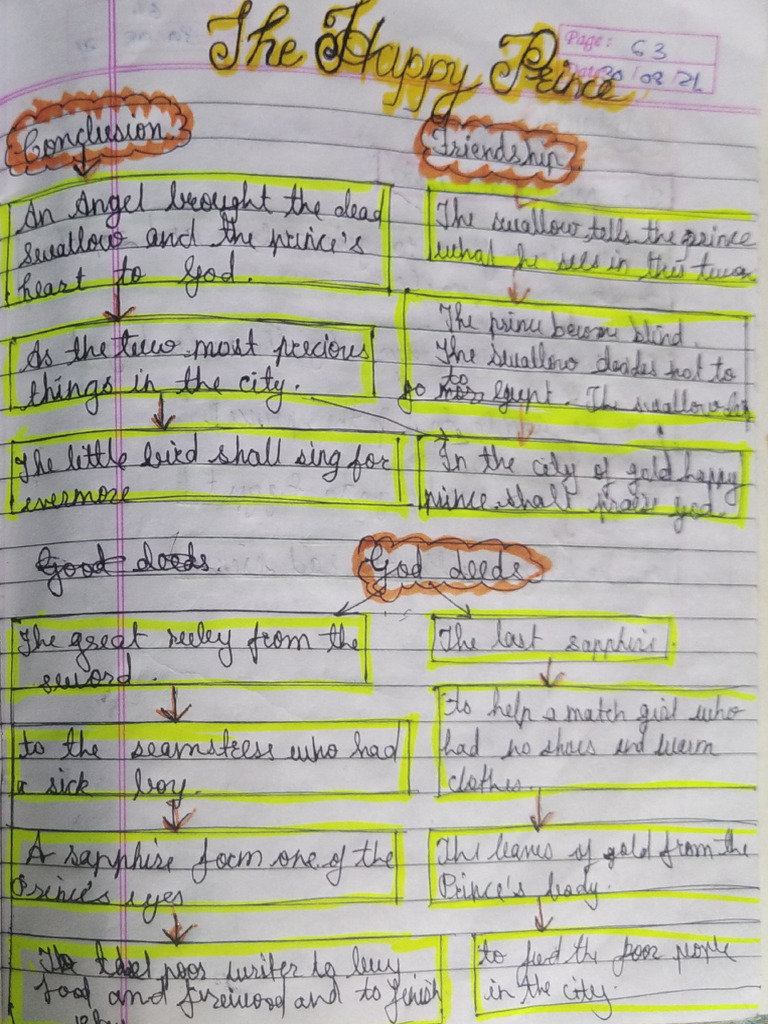 The Happy Prince
Page: 63
Date: 30/08/21
Conclusion
An Angel brought the dead
swallow and the prince's
heart to God.
As the two most precious
things in the city.
The little bird shall sing for
evermore
Friendship
The swallow tells the prince
what he sees in this
The prince become blind.
The swallow decides not to
go to Egypt. The swallow
In the city of gold happy
prince shall praise god.
Good deeds.
God deeds
The great ruby from the
sword.
to the seamstress who had
a sick boy.
A sapphire form one of the
Prince's eyes
To poor writer to buy
food and firewood and to finish
The last sapphire.
to help a match girl who
had no shoes and warm
clothes.
The leaves of gold from the
Prince's body.
to feed the poor people
in the city.